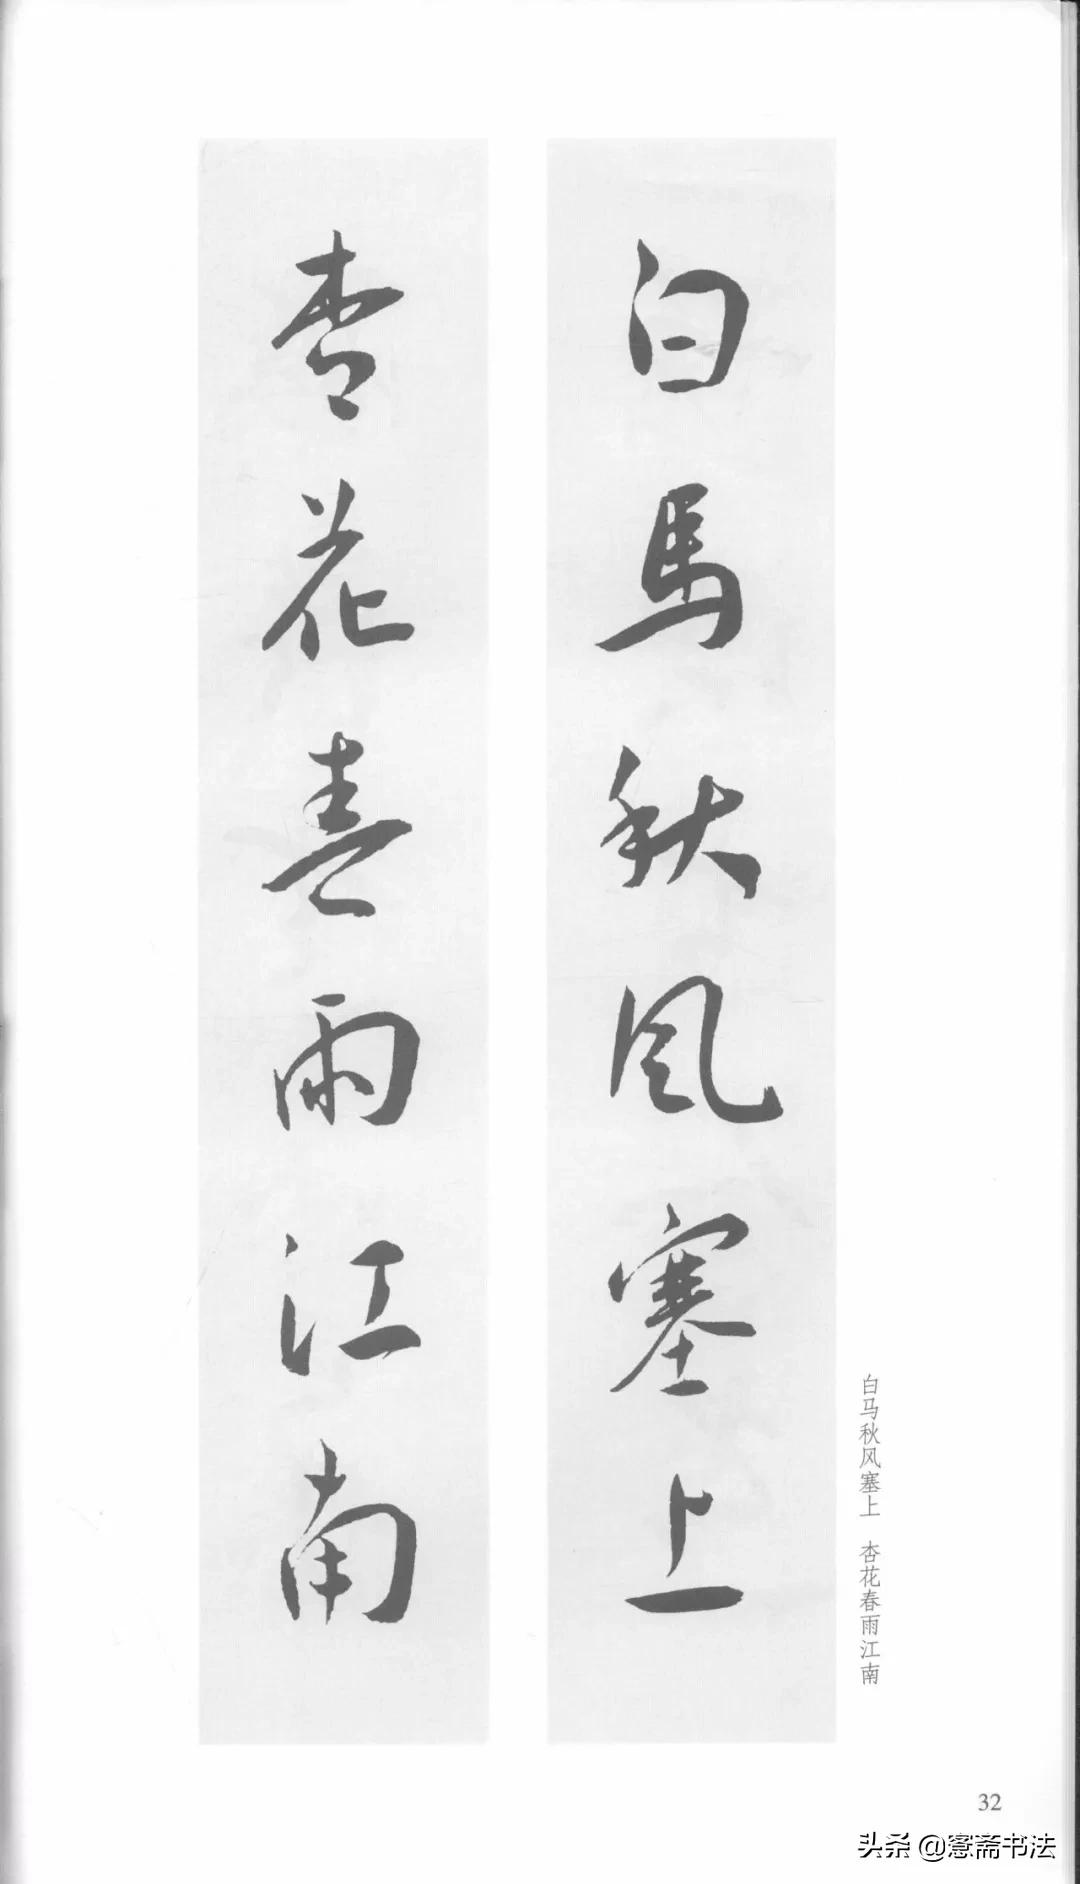 白馬秋風塞上
杏花春雨江南
白马秋风塞上 杏花春雨江南
32
头条 @窓斋书法